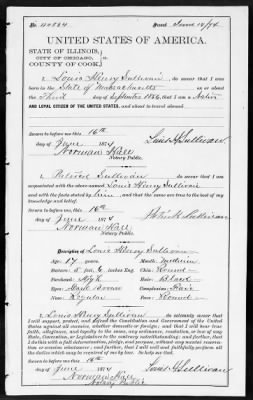 No. 40884 Issued June 19/74
UNITED STATES OF AMERICA.
STATE OF ILLINOIS,
CITY OF CHICAGO, ss.
COUNTY OF COOK.
I, Louis Henry Sullivan, do swear that I was
born in the State of Massachusetts on the
Third day of September 1856, that I am a Native
AND LOYAL CITIZEN OF THE UNITED STATES, and about to travel abroad.
Sworn to before me this 16th
day of June 1874 Louis H Sullivan
Norman Hall
Notary Public.
I, Patrick Sullivan do swear that I am
acquainted with the above-named Louis Henry Sullivan
and with the facts stated by him, and that the same are true to the best of my
knowledge and belief.
Sworn to before me this 16th
day of June 1874 Patrick Sullivan
Norman Hall
Notary Public.
Description of Louis Henry Sullivan
Age: 17 years. Mouth: Medium
Stature: 5 feet, 6 inches Eng. Chin: Round
Forehead: High Hair: Black
Eyes: Dark Brown Complexion: Fair
Nose: Regular Face: Round
I, Louis Henry Sullivan do solemnly swear that I will
support, protect, and defend the Constitution and Government of the United
States against all enemies, whether domestic or foreign; and that I will bear true
faith, allegiance, and loyalty to the same, any ordinance, resolution, or law of any
State, Convention, or Legislature to the contrary notwithstanding; and further, that I
do this with a full determination, pledge, and purpose, without any mental reservation
or evasion whatsoever; and further, that I will well and faithfully perform all
the duties which may be required of me by law. So help me God.
Sworn to before me this 16th
day of June 1874 Louis H Sullivan
Norman Hall
Notary Public